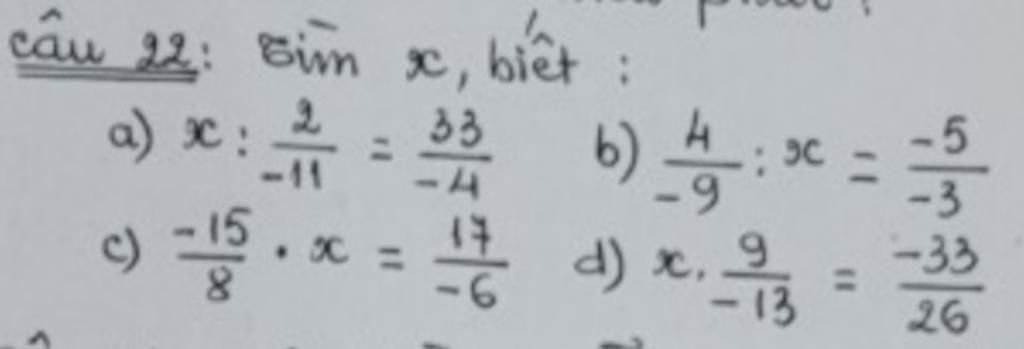 câu 22: Tìm x, biết :
a) x : 2/-11 = 33/-4 b) 4/-9 : x = -5/-3
c) -15/8 . x = 17/-6 d) x . 9/-13 = -33/26